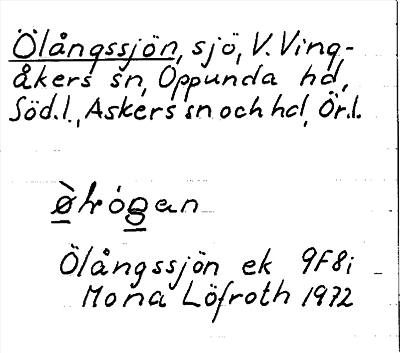 Ölångssjön, sjö, V. Ving-
åkers sn, Oppunda hd,
Söd.l., Askers sn och hd, Ör.l.
Ölångssjön ek 9F8i
Mona Löfroth 1972